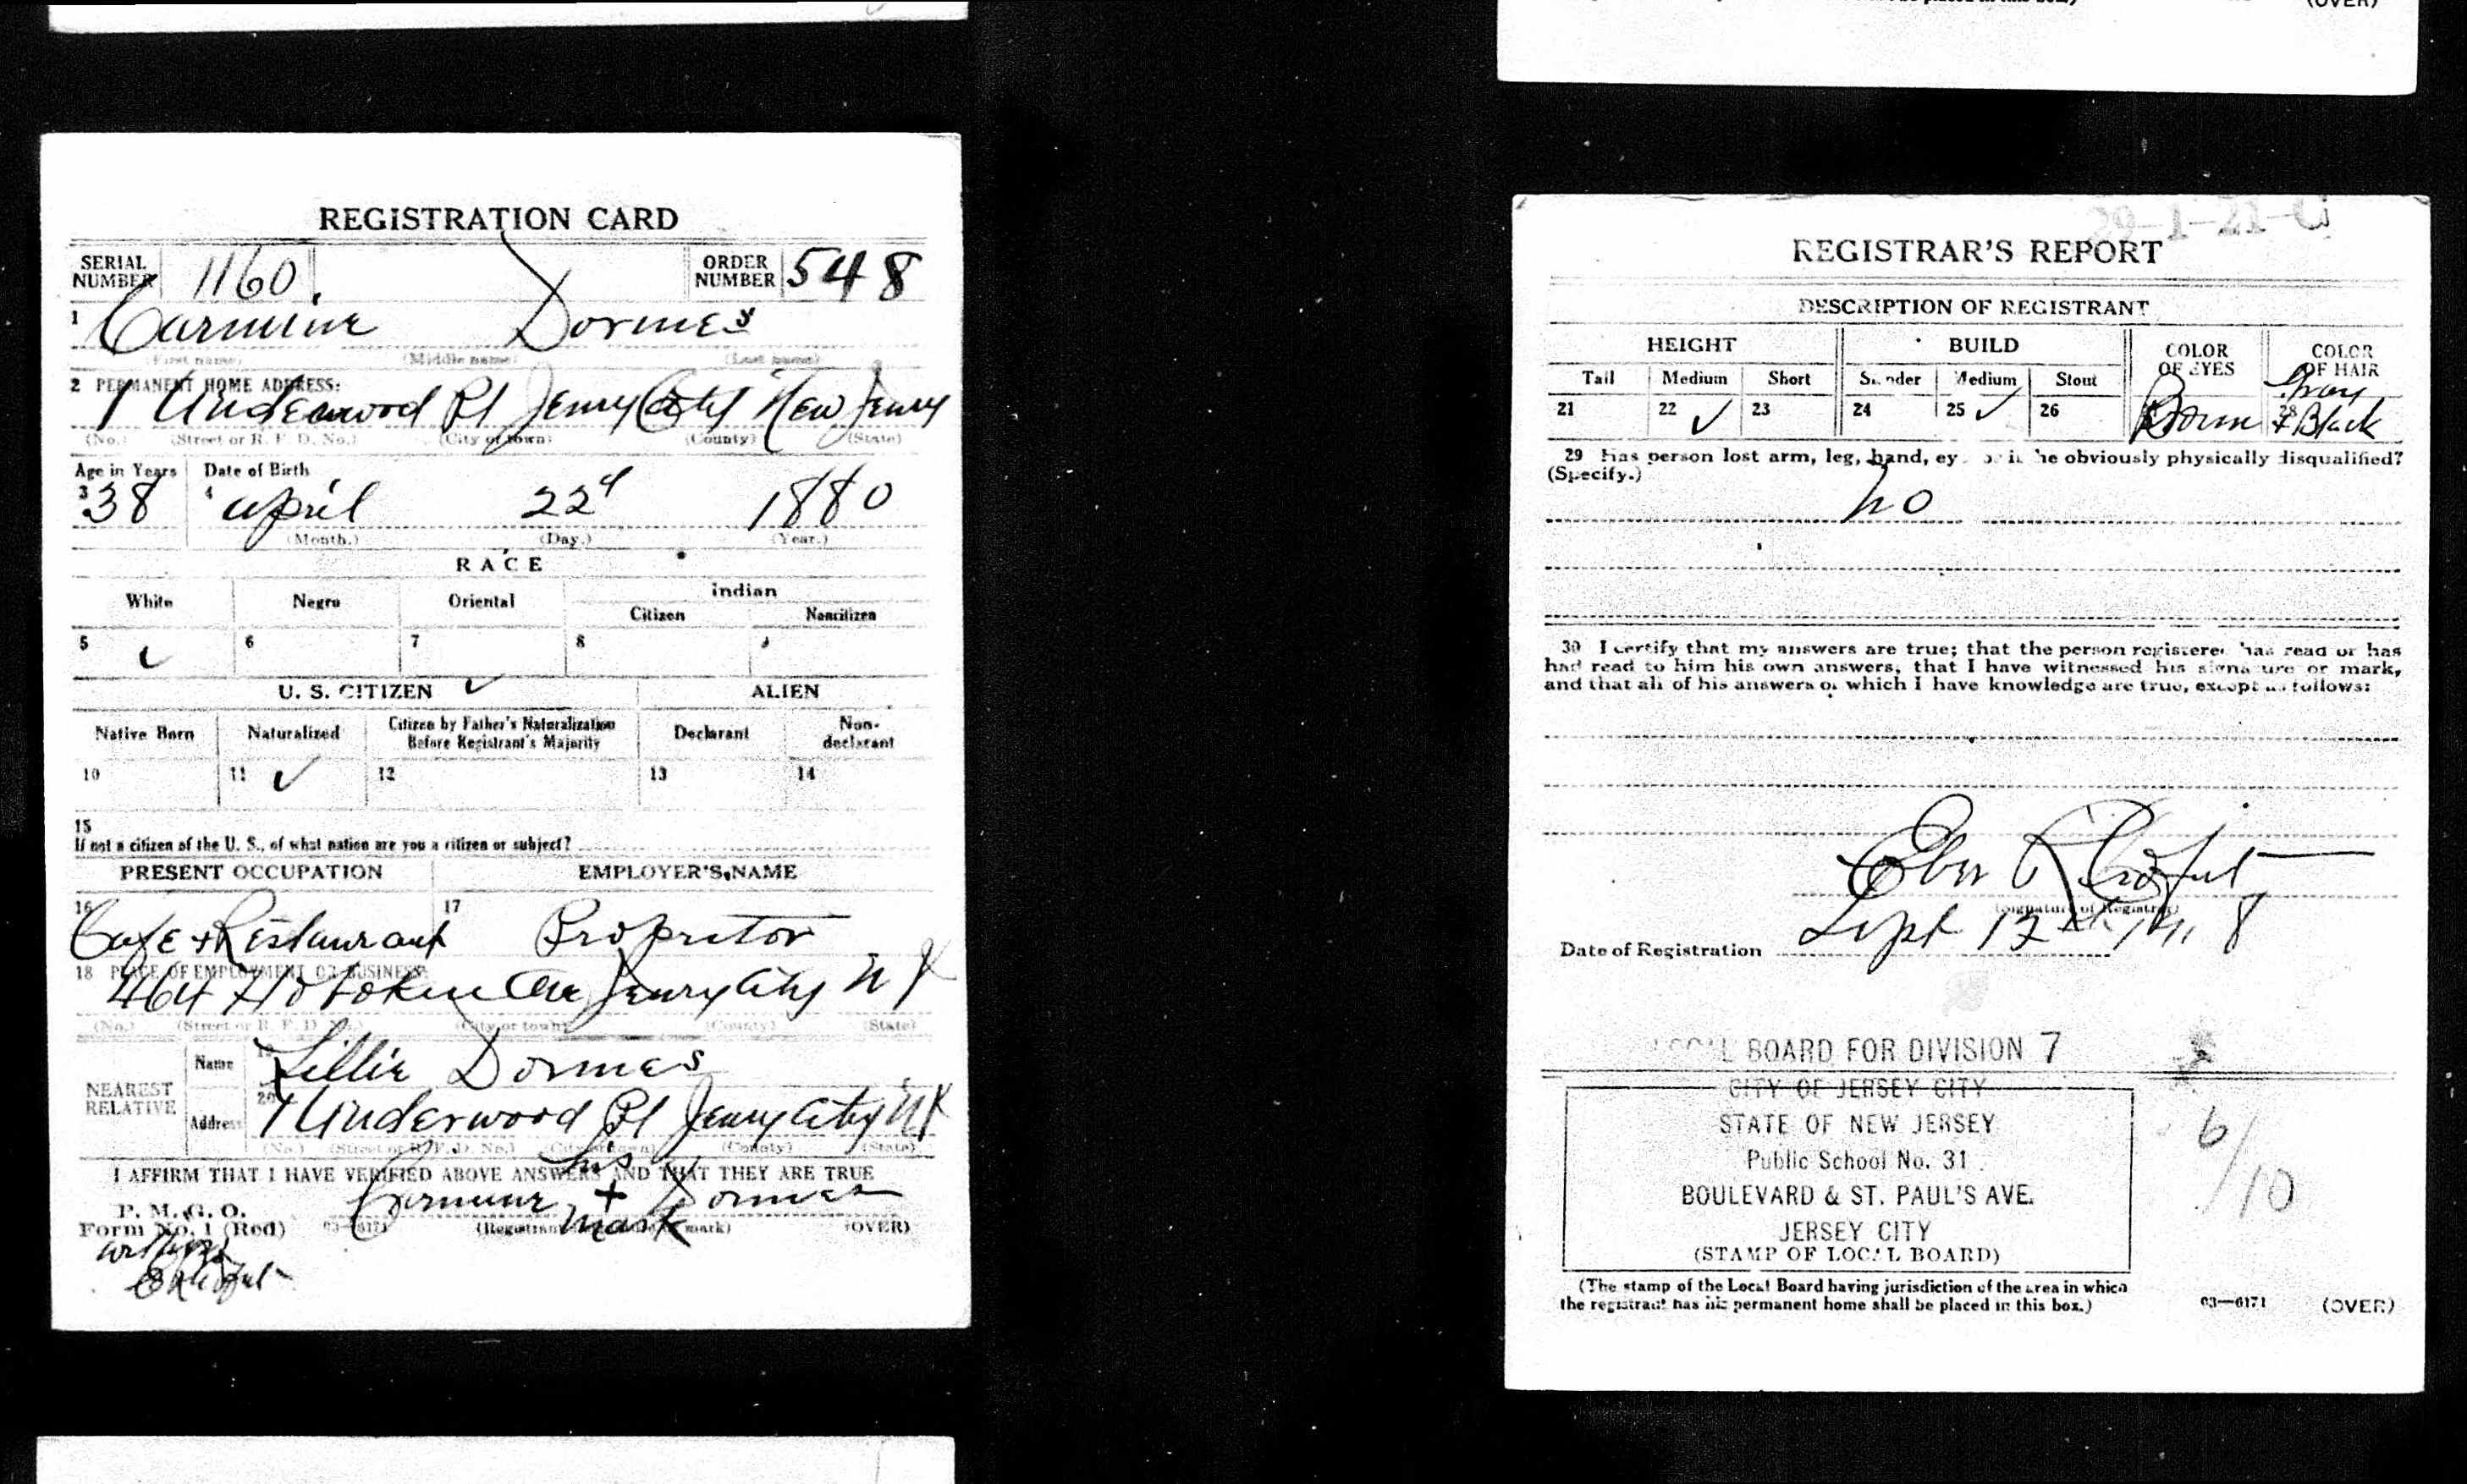 (OVER)
REGISTRATION CARD
SERIAL NUMBER 1160. ORDER NUMBER 548
1 Carmine Dormes
(First name) (Middle name) (Last name)
2 PERMANENT HOME ADDRESS:
1 Underwood Pl Jersey City New Jersey
(No.) (Street or R. F. D. No.) (City or town) (County) (State)
Age in Years Date of Birth
3 38 4 April 22d 1880
(Month.) (Day.) (Year.)
RACE
White Negro Oriental Indian
Citizen Noncitizen
5 ✓ 6 7 8 9
U. S. CITIZEN ✓ ALIEN
Native Born Naturalized Citizen by Father's Naturalization Before Registrant's Majority Declarant Non-declarant
10 11 ✓ 12 13 14
15
If not a citizen of the U. S., of what nation are you a citizen or subject?
PRESENT OCCUPATION EMPLOYER'S NAME
16 Cafe + Restaurant 17 Propritor
18 PLACE OF EMPLOYMENT OR BUSINESS:
464 Hoboken Ave Jersey City N J
(No.) (Street or R. F. D. No.) (City or town) (County) (State)
NEAREST RELATIVE
Name 19 Lillie Dormes
Address 20 1 Underwood Pl Jersey City NJ
(No.) (Street or R. F. D. No.) (City or town) (County) (State)
I AFFIRM THAT I HAVE VERIFIED ABOVE ANSWERS AND THAT THEY ARE TRUE
his
P. M. G. O. Carmine + Dormes
Form No. 1 (Red) 03—6171 mark (OVER)
29-1-21-C
REGISTRAR'S REPORT
DESCRIPTION OF REGISTRANT
HEIGHT BUILD COLOR OF EYES COLOR OF HAIR
Tall Medium Short Slender Medium Stout
21 22 ✓ 23 24 25 ✓ 26 Brown 28 Gray + Black
29 Has person lost arm, leg, hand, eye, or is he obviously physically disqualified?
(Specify.)
no
30 I certify that my answers are true; that the person registered has read or has
had read to him his own answers; that I have witnessed his signature or mark,
and that all of his answers of which I have knowledge are true, except as follows:
(Signature of Registrar)
Date of Registration Sept 12th 1918
LOCAL BOARD FOR DIVISION 7
CITY OF JERSEY CITY
STATE OF NEW JERSEY
Public School No. 31
BOULEVARD & ST. PAUL'S AVE.
JERSEY CITY
(STAMP OF LOCAL BOARD)
6/10
(The stamp of the Local Board having jurisdiction of the area in which
the registrant has his permanent home shall be placed in this box.)
03—6171 (OVER)